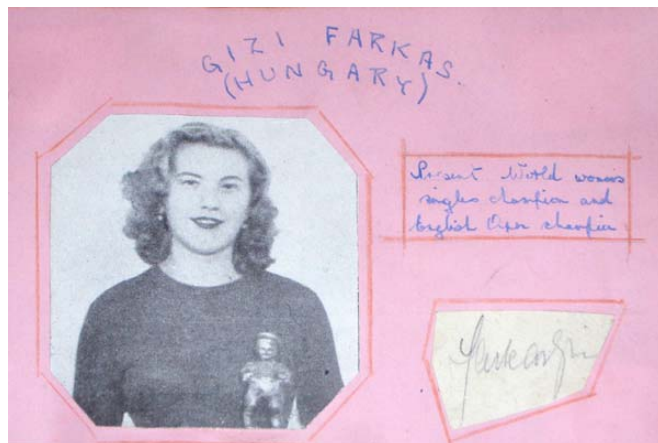 GIZI FARKAS.
(HUNGARY)
Present World womens
singles champion and
English Open champion
Farkas Gizi